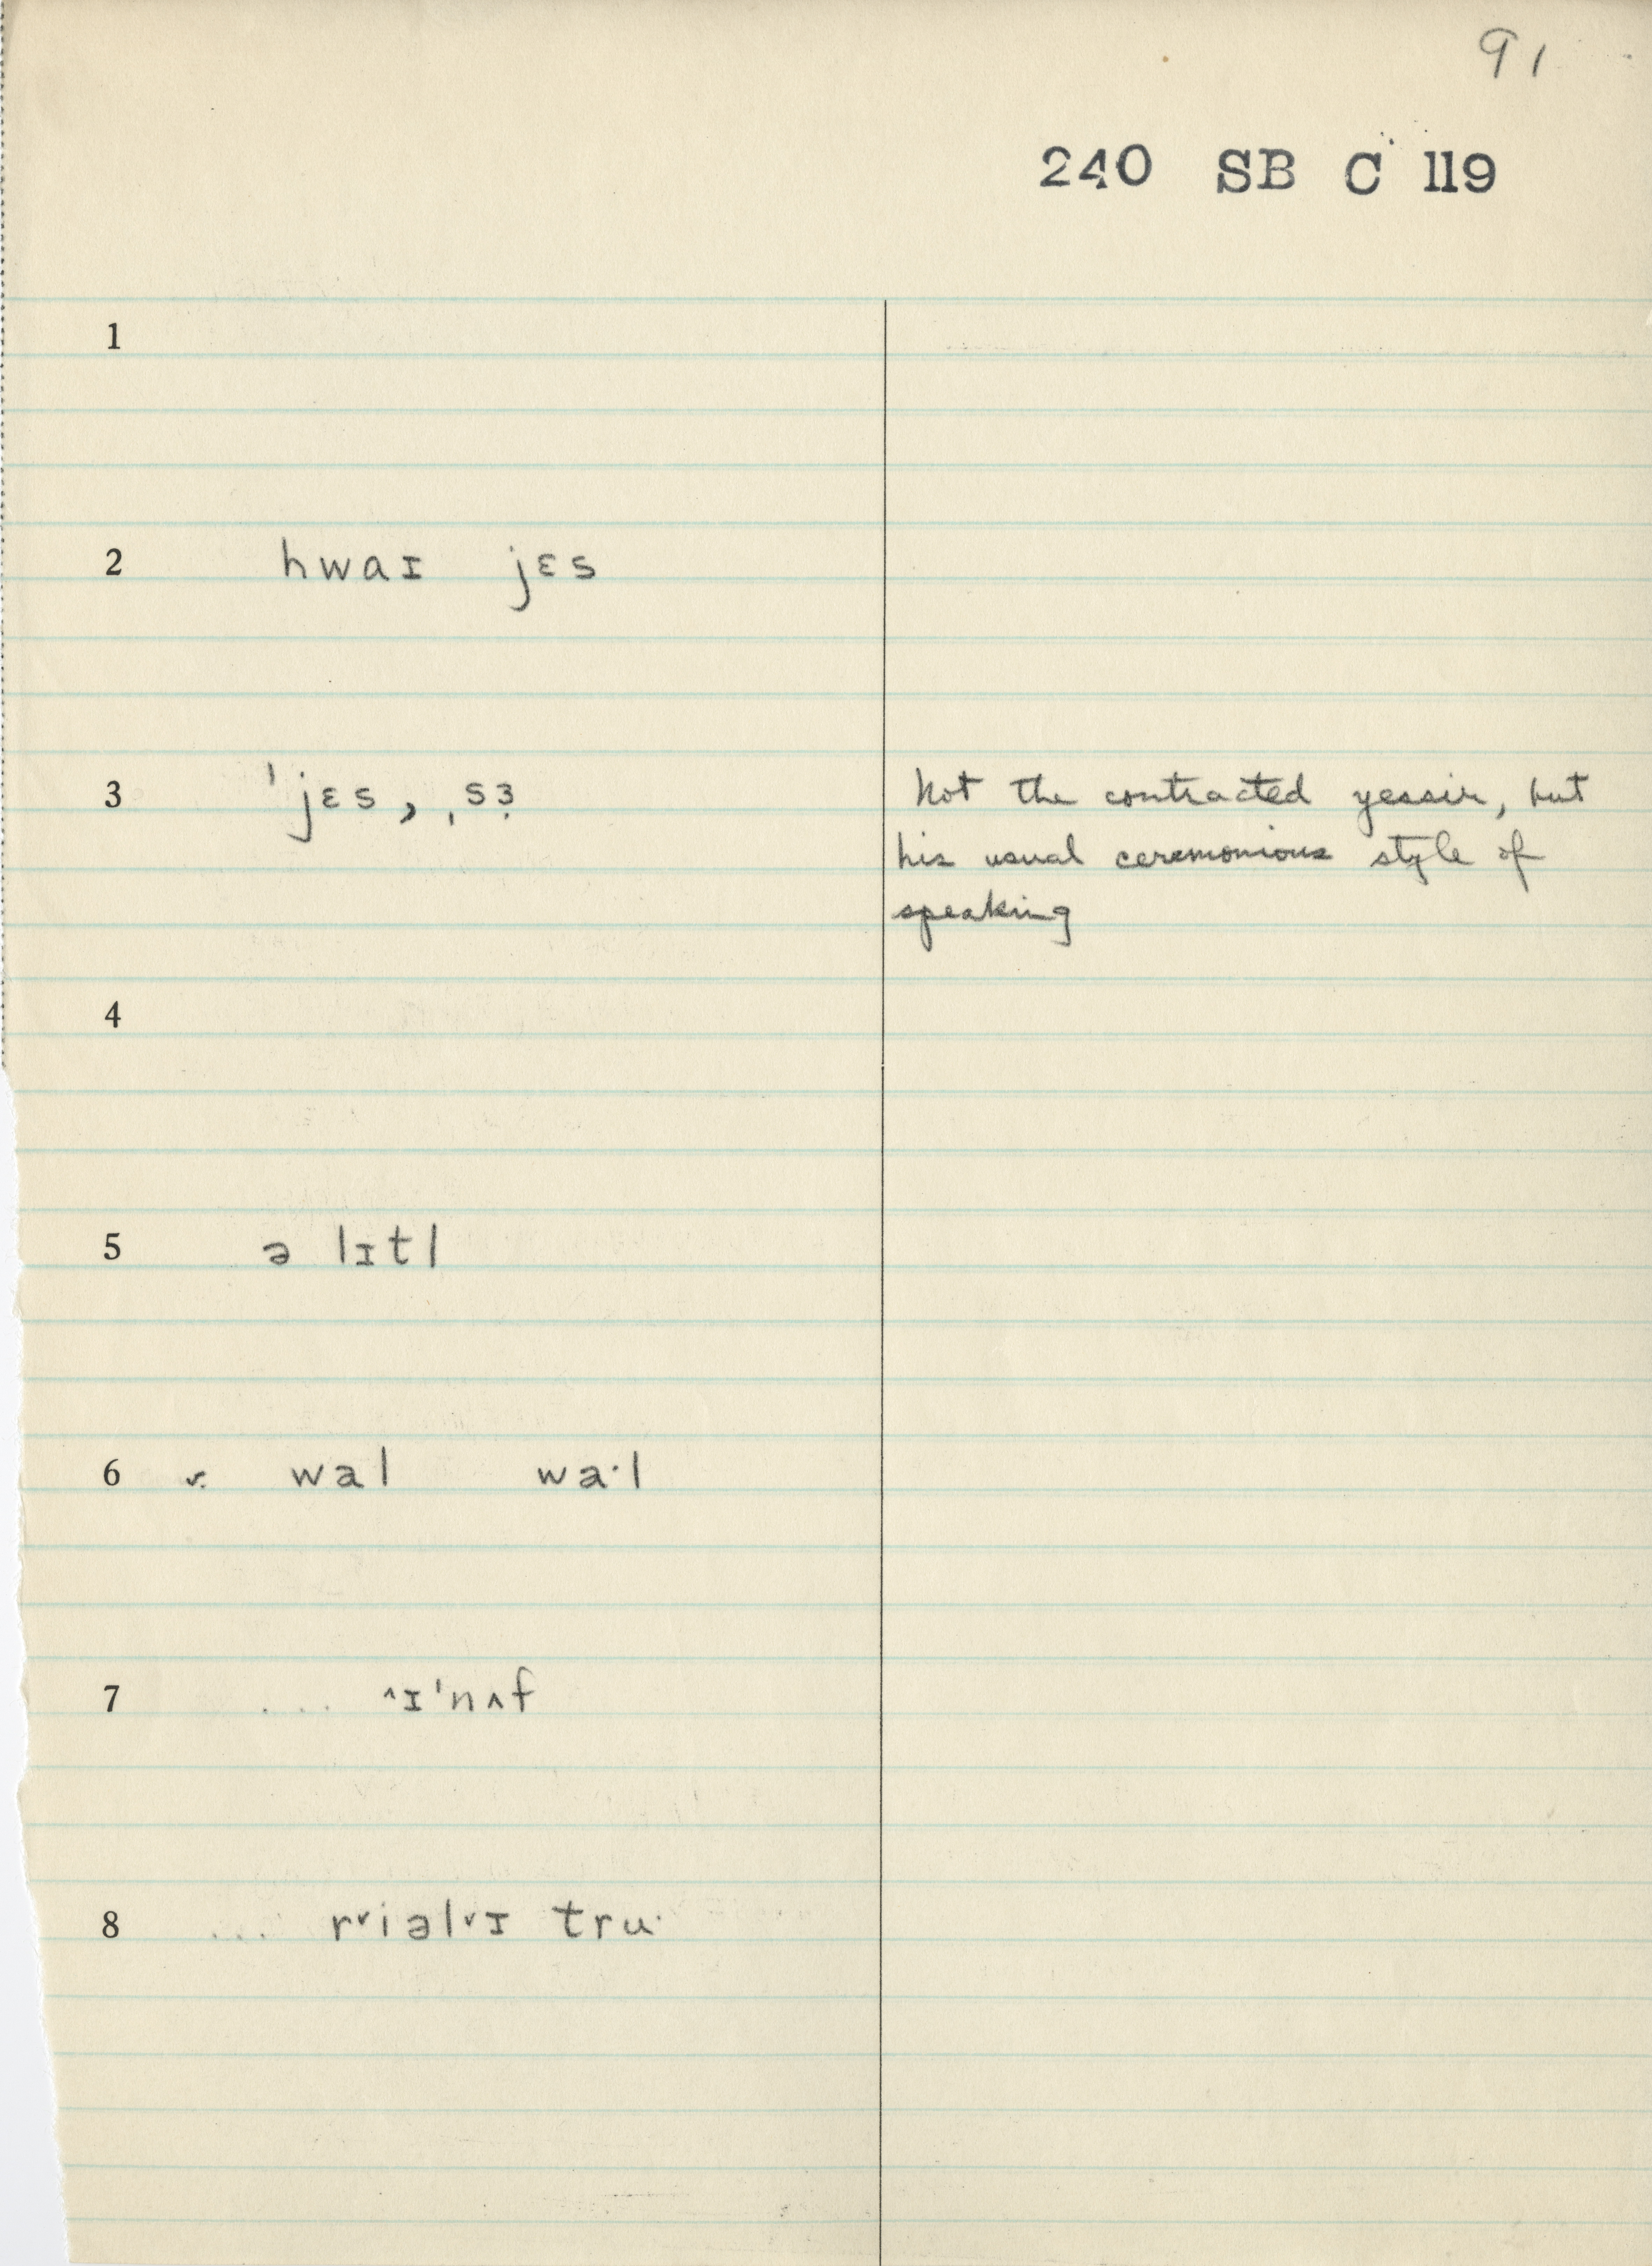 91
240 SB C 119
1
2 hwaɪ jɛs
3 ˈjɛs, ˌsɜ̣ Not the contracted yessir, but
his usual ceremonious style of
speaking
4
5 ə lɪtl
6 ⱽ: wal wa·l
7 ... ˄ɪˈnʌf
8 ... r˅iəl˅ɪ tru·